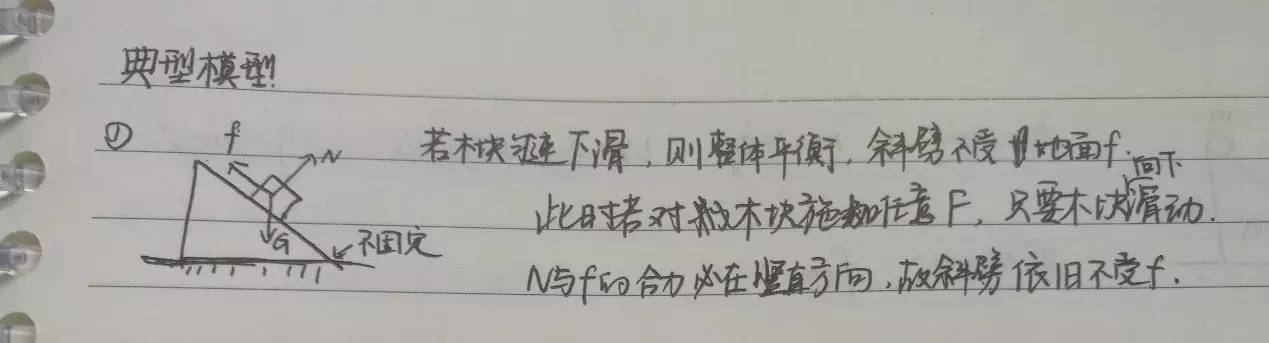 典型模型!
① f N 若木块匀速下滑，则整体平衡，斜劈不受地面f.
G 不固定 此时若对木块施加任意F，只要木块向下滑动.
N与f的合力必在竖直方向，故斜劈依旧不受f.